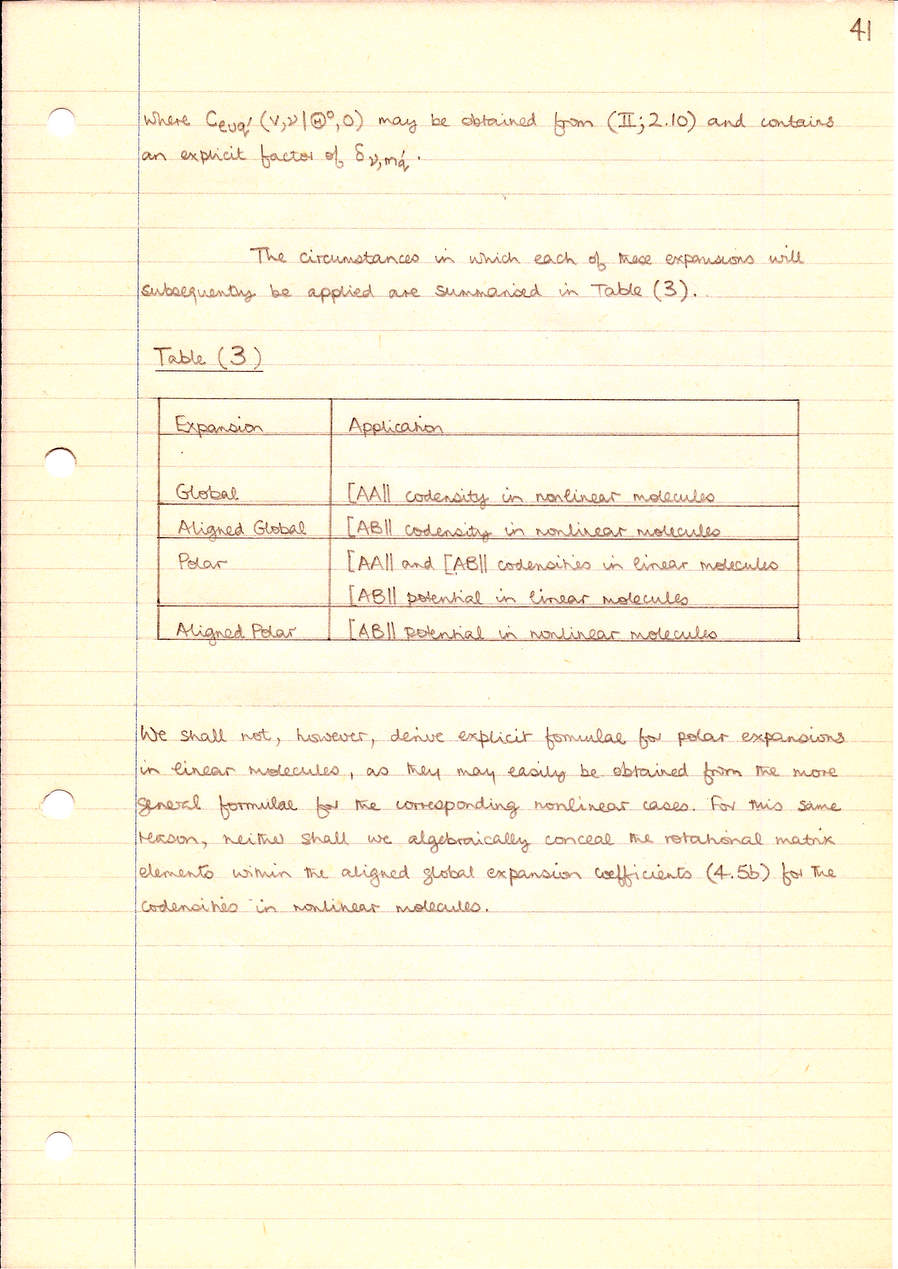 41
where C_euq' (V,ν|Θ⁰,0) may be obtained from (II;2.10) and contains
an explicit factor of δ_ν,m'q.
The circumstances in which each of these expansions will
subsequently be applied are summarised in Table (3).
Table (3)
Expansion Application
Global [AA|| codensity in nonlinear molecules
Aligned Global [AB|| codensity in nonlinear molecules
Polar [AA|| and [AB|| codensities in linear molecules
[AB|| potential in linear molecules
Aligned Polar [AB|| potential in nonlinear molecules
We shall not, however, derive explicit formulae for polar expansions
in linear molecules, as they may easily be obtained from the more
general formulae for the corresponding nonlinear cases. For this same
reason, neither shall we algebraically conceal the rotational matrix
elements within the aligned global expansion coefficients (4.5b) for the
codensities in nonlinear molecules.